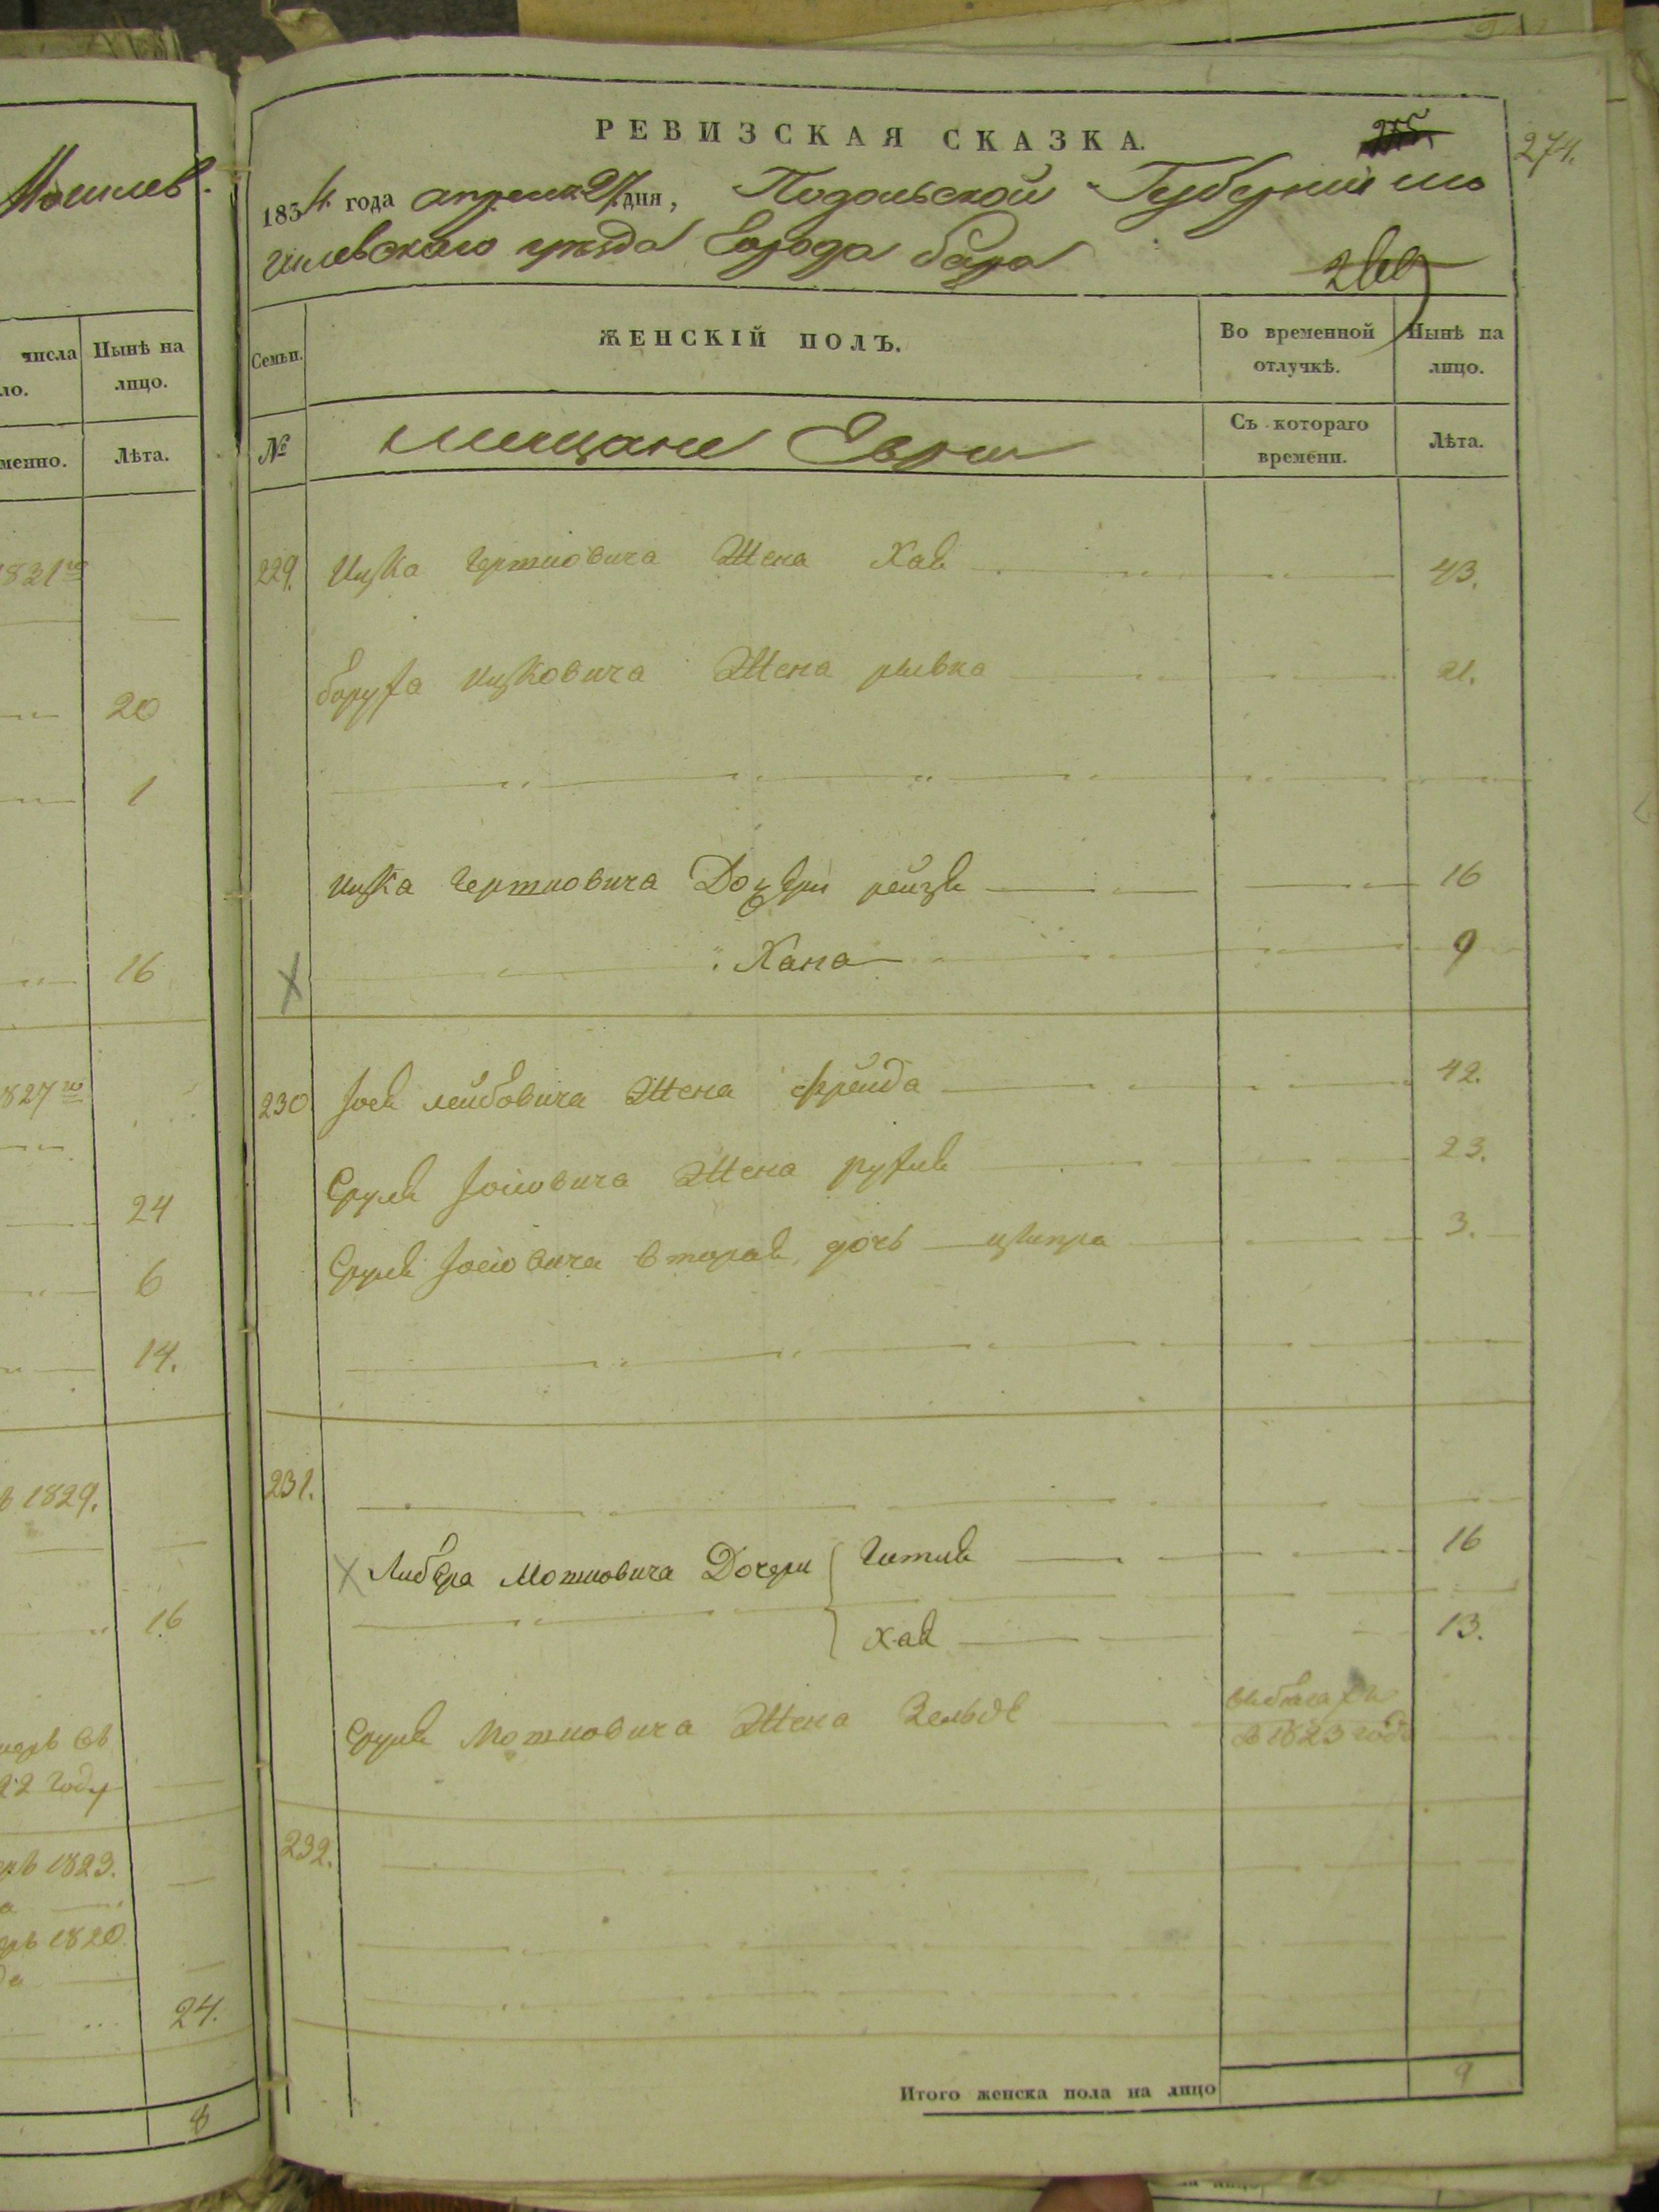 Могилев.
числа
ло.
Нынѣ на
лицо.
менно.
Лѣта.
1831го
20
1
16
1827го
24
6
14.
в 1829.
16
22 году
1823.
1820
24.
8
274.
РЕВИЗСКАЯ СКАЗКА.
275.
1834 года апреля 27 дня, Подольской Губернии мо
гилевского уезда Города бара
Семьи.
ЖЕНСКІЙ ПОЛЪ.
Во временной
отлучкѣ.
Нынѣ на
лицо.
№
Мещане Евреи
Съ котораго
времени.
Лѣта.
229. Ицка Гершковича Жена Хая 43.
боруха Ицковича Жена ривка 21.
Ицка Герш­ковича Дочери рейзя 16
Хана 9
230 Іося лейбовича Жена фрейда 42.
Сруля Іосіовича Жена рухля 23.
Сруля Іосіовича вторая дочь ципра 3.
231.
Либера Мошковича Дочери Гитля 16
Хая 13.
Сруля Мошковича Жена Зельде
в 1823 годе
232.
Итого женска пола на лицо 9